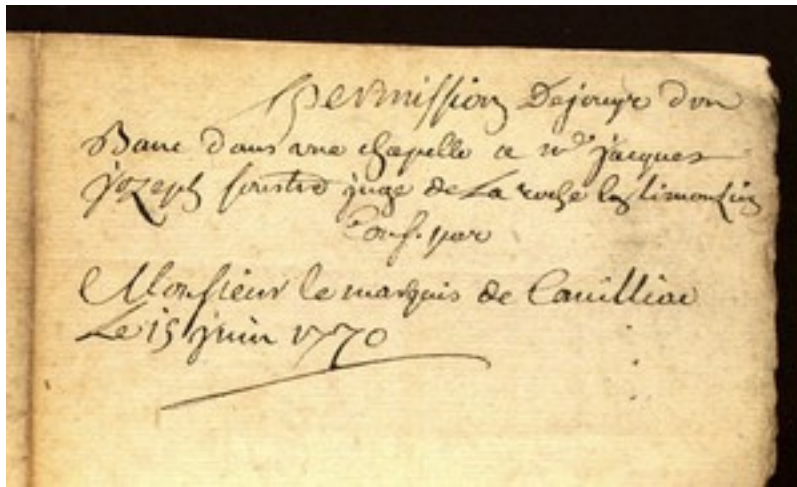 Permission Dejouyr d'un
Banc dans une chapelle a Mr jacques
jozeph juge de La roche Limouzin
par
Monsieur le marquis de Canilliac
Le 15 juin 1770